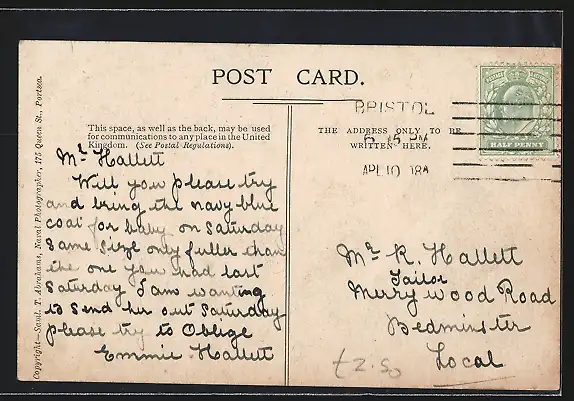 POST CARD.
This space, as well as the back, may be used
for communications to any place in the United
Kingdom. (See Postal Regulations).
THE ADDRESS ONLY TO BE
WRITTEN HERE.
BRISTOL
HALF PENNY
Copyright—Saml. T. Abrahams, Naval Photographer, 177, Queen St., Portsea.
Mr Hallett
Will you please try
and bring the navy blue
coat for baby on Saturday
Same Size only fuller than
the one you had last
Saturday I am wanting
to Send her out Saturday
please try to Oblige
Emmie Hallett
Mr R. Hallett
Tailor
Merrywood Road
Bedminster
Local